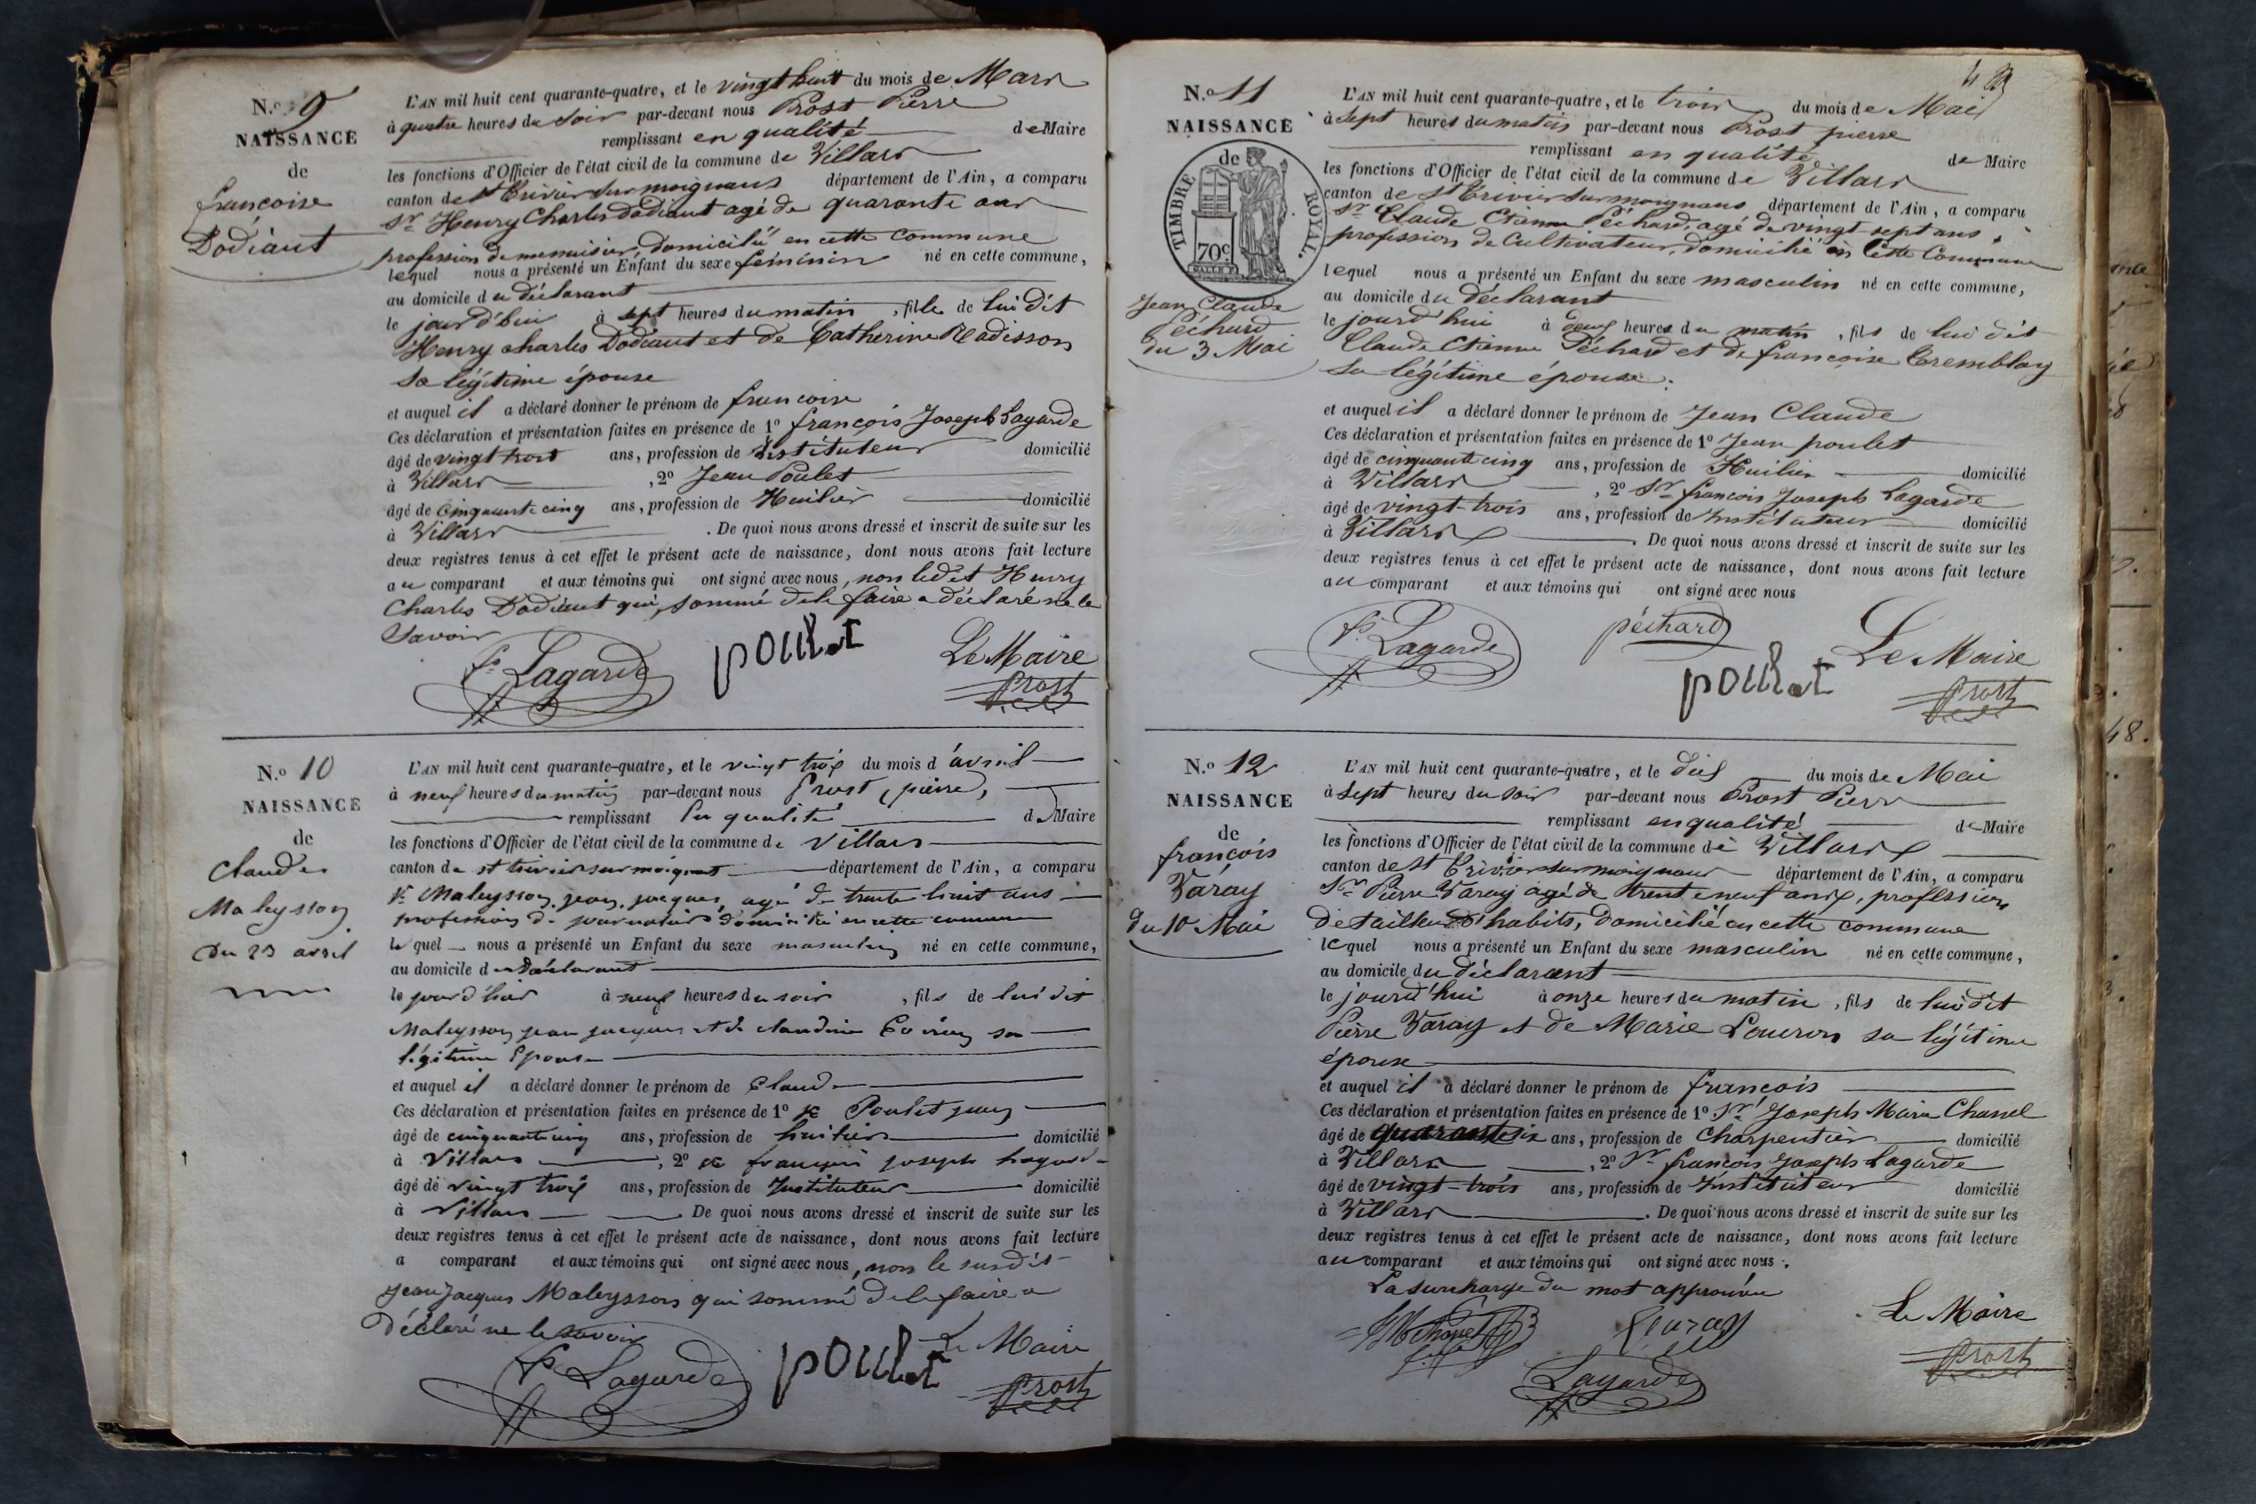 N.o 9
NAISSANCE
de
françoise
Dodiant
L'AN mil huit cent quarante-quatre, et le vingt huit du mois de Mars
à quatre heures du soir par-devant nous Prost Pierre
remplissant en qualité de Maire
les fonctions d'Officier de l'état civil de la commune de Villars
canton de St Trivier sur moignans département de l'Ain, a comparu
Sr Henry Charles Dodiant agé de quarante ans
profession de menuisier, domicilié en cette commune
lequel nous a présenté un Enfant du sexe féminin né en cette commune,
au domicile du déclarant
le jour d'hui à sept heures du matin, fille de lui dit
Henry charles Dodiant et de Catherine Radisson
sa légitime épouse
et auquel il a déclaré donner le prénom de françoise
Ces déclaration et présentation faites en présence de 1º françois Joseph Lagarde
âgé de vingt trois ans, profession de Instituteur domicilié
à Villars, 2º Jean Poulet
âgé de cinquante cinq ans, profession de Huilier domicilié
à Villars. De quoi nous avons dressé et inscrit de suite sur les
deux registres tenus à cet effet le présent acte de naissance, dont nous avons fait lecture
au comparant et aux témoins qui ont signé avec nous, non ledit Henry
Charles Dodiant qui, sommé de le faire a déclaré ne le
savoir
Lagarde poulet Le Maire
Prost
N.o 10
NAISSANCE
de
Claude
Maleysson
Du 23 avril
L'AN mil huit cent quarante-quatre, et le vingt trois du mois d'avril
à neuf heures du matin par-devant nous Prost, pierre,
remplissant en qualité de Maire
les fonctions d'Officier de l'état civil de la commune de Villars
canton de st trivier sur moignat département de l'Ain, a comparu
Sr Maleysson, jean, jacques, agé de trente huit ans
profession de journalier domicilié en cette commune
lequel nous a présenté un Enfant du sexe masculin né en cette commune,
au domicile du déclarant
le jour d'hier à neuf heures du soir, fils de lui dit
Maleysson jean jacques et de claudine sa
légitime Epouse
et auquel il a déclaré donner le prénom de Claude
Ces déclaration et présentation faites en présence de 1º Sr Poulet jean
âgé de cinquante cinq ans, profession de huilier domicilié
à Villars, 2º Sr françois joseph Lagarde
âgé de vingt trois ans, profession de Instituteur domicilié
à Villars. De quoi nous avons dressé et inscrit de suite sur les
deux registres tenus à cet effet le présent acte de naissance, dont nous avons fait lecture
a comparant et aux témoins qui ont signé avec nous, non le susdit
jean jacques Maleysson qui sommé de le faire a
déclaré ne le savoir
Lagarde poulet Le Maire
Prost
N.o 11
NAISSANCE
de
TIMBRE ROYAL.
70c
Jean Claude
Péchard
du 3 Mai
L'AN mil huit cent quarante-quatre, et le trois du mois de Mai
à sept heures du matin par-devant nous Prost pierre
remplissant en qualité de Maire
les fonctions d'Officier de l'état civil de la commune de Villars
canton de St Trivier sur moignans département de l'Ain, a comparu
Sr Claude Etienne Péchard, agé de vingt sept ans,
profession de Cultivateur, domicilié en cette Commune
lequel nous a présenté un Enfant du sexe masculin né en cette commune,
au domicile du déclarant
le jourd'hui à deux heures du matin, fils de lui dit
Claude Etienne Péchard et de françoise Tremblay
sa légitime épouse.
et auquel il a déclaré donner le prénom de Jean Claude
Ces déclaration et présentation faites en présence de 1º Jean poulet
âgé de cinquante cinq ans, profession de Huilier domicilié
à Villars, 2º Sr françois Joseph Lagarde
âgé de vingt-trois ans, profession de Instituteur domicilié
à Villars. De quoi nous avons dressé et inscrit de suite sur les
deux registres tenus à cet effet le présent acte de naissance, dont nous avons fait lecture
au comparant et aux témoins qui ont signé avec nous
Lagarde péchard Le Maire
poulet Prost
N.o 12
NAISSANCE
de
françois
Varay
du 10 Mai
L'AN mil huit cent quarante-quatre, et le dix du mois de Mai
à sept heures du soir par-devant nous Prost Pierre
remplissant en qualité de Maire
les fonctions d'Officier de l'état civil de la commune de Villars
canton de St Trivier sur moignans département de l'Ain, a comparu
Sr Pierre Varay agé de trente neuf ans, profession
de tailleur d'habits, domicilié en cette commune
lequel nous a présenté un Enfant du sexe masculin né en cette commune,
au domicile du déclarant
le jourd'hui à onze heures du matin, fils de lui dit
Pierre Varay et de Marie Louvon sa légitime
épouse
et auquel il a déclaré donner le prénom de françois
Ces déclaration et présentation faites en présence de 1º Sr Joseph Marie Chanel
âgé de quarante six ans, profession de Charpentier domicilié
à Villars, 2º Sr françois Joseph Lagarde
âgé de vingt-trois ans, profession de Instituteur domicilié
à Villars. De quoi nous avons dressé et inscrit de suite sur les
deux registres tenus à cet effet le présent acte de naissance, dont nous avons fait lecture
au comparant et aux témoins qui ont signé avec nous.
La surcharge du mot approuvée
Varay Le Maire
Lagarde Prost